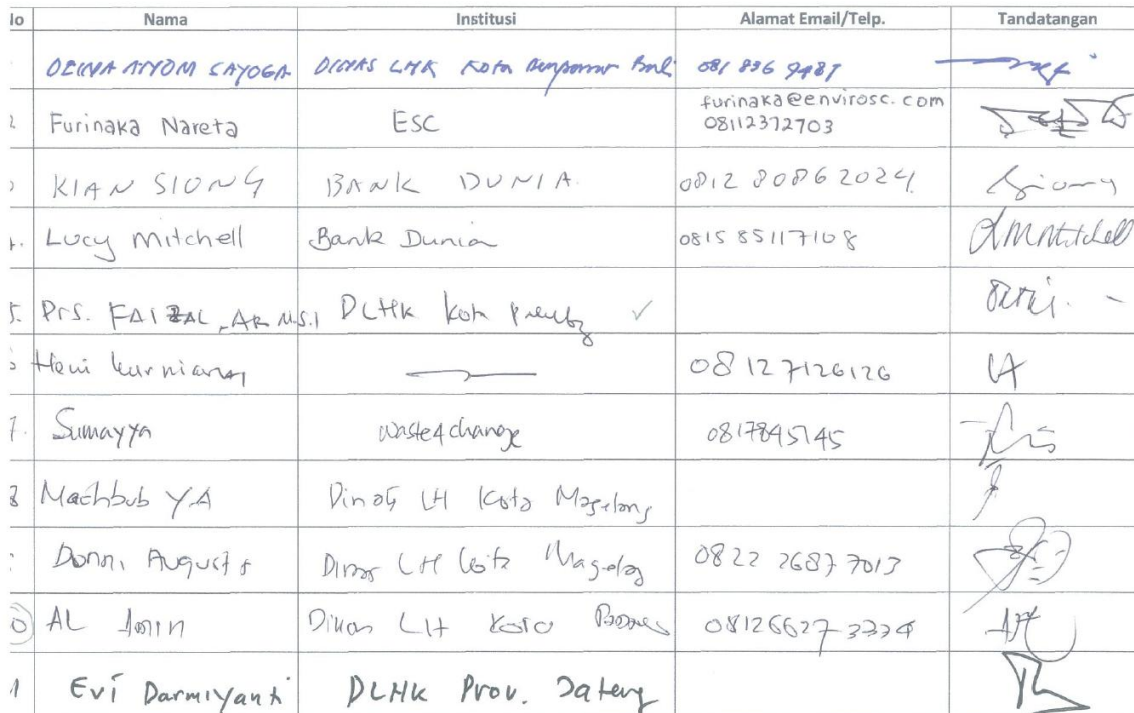 No Nama Institusi Alamat Email/Telp. Tandatangan
SAYOGA DINAS LHK Kota Bali 081 896 9487
2 Furinaka Nareta ESC furinaka@envirosc.com
08112372703
KIAN SIONG BANK DUNIA 0812 8086 2024
4. Lucy Mitchell Bank Dunia 0815 85117108
5. Drs. FAIZAL, AR M.S.I DLHK Kota
Heni Kurniawan 08127126126
7. Sumayya waste4change 0817845745
8 Machbub YA Dinas LH Kota Magelang
Donni Augusto Dinas LH Kota Magelang 0822 2687 7013
10 AL Amin Dinas LH Kota 08126627 3334
1 Evi Darmiyanti DLHK Prov. Jateng